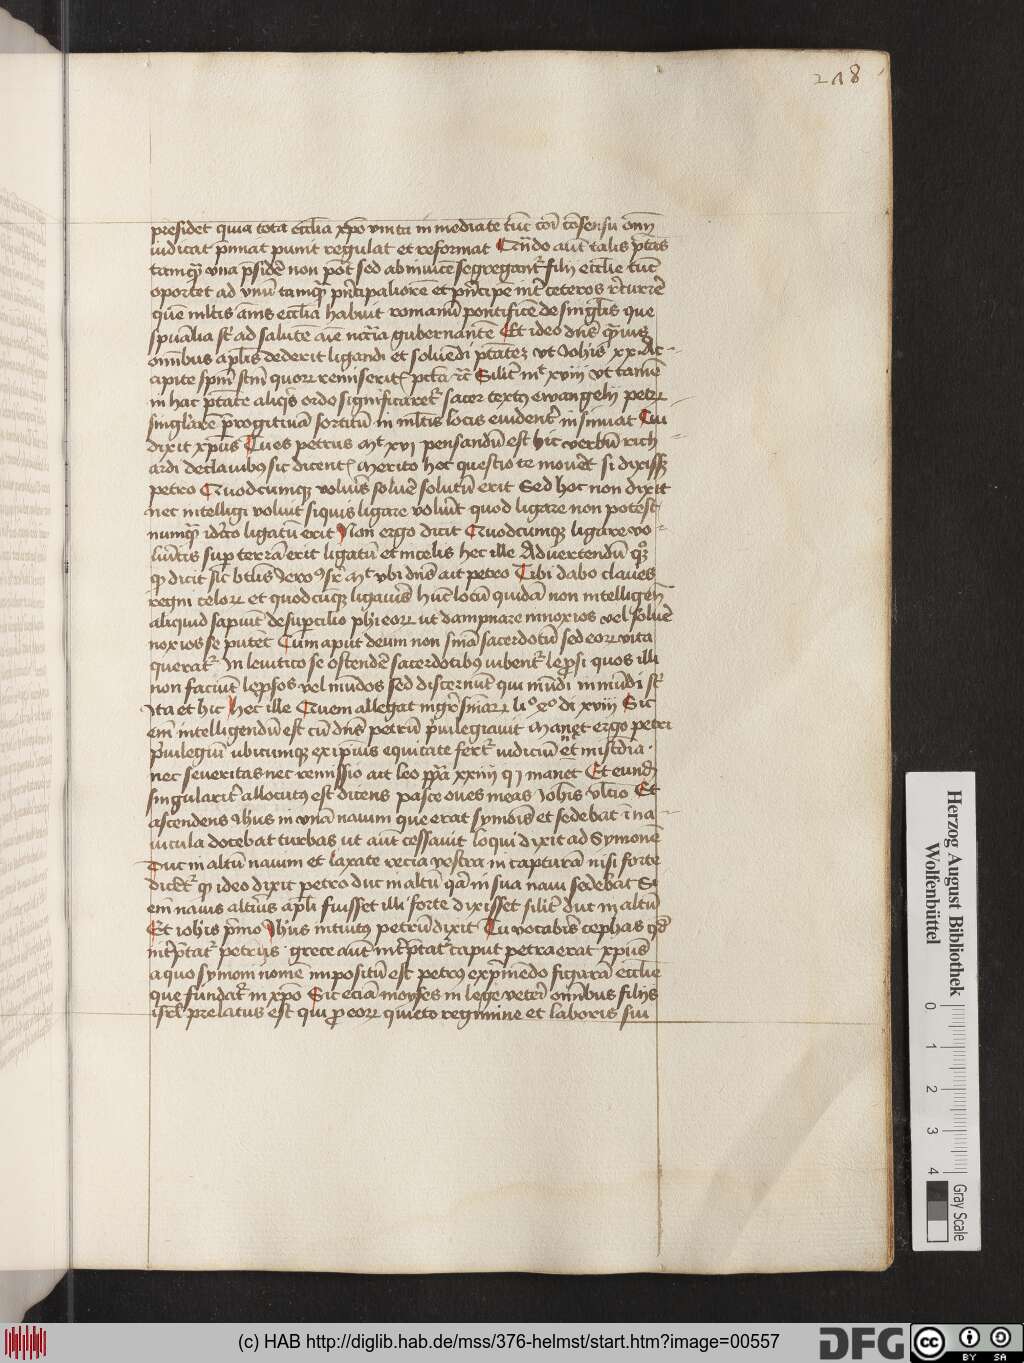 218
presidet quia tota eccl̄ia xp̄o vnita in mediate tūc cōi cōsensu om̄
iudicat p̄miat punit regulat et reformat Qn̄do aut̄ talis p̄tas
tamqȝ vna p̄sidē non pōt sed abinuicē segregant̄ filij eccl̄ie tūc
oportet ad vnū tamqȝ pn̄cipaliorē et pn̄cipē int̄ ceteros recurrē
quē ml̄tis ānis eccl̄ia habuit romanū pontificē de singl̄is que
spūalia sūt ad salutē aīe nc̄cīa gubernantē Et ideo dn̄s
omībus apl̄is dederit ligandi et soluēdi p̄tatē vt Joh̄is xx Ac
apite spm̄ sc̄m quoꝝ remiseritis pctā ⁊c̄ Silit̄ mt xviij vt tamē
in hac p̄tate aliqͥs ordo significaret̄ sacer textꝰ ewangelij petꝝ
singl̄arē p̄rogatiuā sortitū in ml̄tis locis euident̄ insinuat Cui
dixit xp̄us Tu es petrus mt xvi pensandū est hic verbū rich
ardi de clauibꝰ sic dicentis Merito hec questio te mouēt si dixissȝ
petro Quodcumqȝ volueīs soluē solutū erit Sed hoc non dixit
nec intelligi voluit si quis ligare volūit quod ligare non potest
numqͥd idc̄o ligatū erit Non ergo dicit Quodcumqȝ ligare vo
luīs sup terrā erit ligatū et in celis hec ille Aduertendū
qȝ dicit sic̄ btūs Jeroꝰ sr̄ mt vbi dn̄s ait petro Tibi dabo claues
regni celoꝝ et quodcūqȝ ligaueīs hūc locū quidā non intelligētes
aliquid sapiūt de supcilio ph̄ieoꝝ ut dampnare innoxios vel soluē
noxios se putēt Cum aput deum non sn̄ia sacerdotū sed eoꝝ vita
querat̄ In leuitico se ostendē sacerdotibꝰ iubent̄ lep̄si quos illi
non faciūt lep̄sos vel mūdos sed discernūt qui mūdi inmūdi sūt
Ita et hic Hec ille Quem allegat mgr̄ sn̄iaꝝ li°4° di xviij Sic
em̄ intelligendū est cū dn̄s petrū p̄uilegiauit Manet ergo petri
p̄uilegiū ubicumqȝ ex ip̄ius equitate fert̄ iudiciū n̄ ēt mis̄dia
nec seueritas nec remissio ait leo p̄p̄a xxiiij q j manēt Et eundē
singularit̄ allocutꝰ est dicens pasce oues meas Joh̄is vl̄tio Et
ascendens Jhūs in vnā nauim que erat symōis et sedebat ī na
uicula docebat turbas ut aūt cessauit loqui dixit ad Symonē
Duc in altū nauim et laxate recia vestra in capturā nisi forte
dicēt̄ qȝ ideo dixit petro duc in altū qā in sua naui sedebat Si
em̄ nauis altīus apl̄i fuisset illi forte dixisset silit̄ duc in altū
Et ioh̄is p̄mo Jhūs intuitꝰ petrū dixit Tu vocabis̄ cephas qd̄
int̄p̄tat̄ petrus grece aut̄ int̄p̄tat̄ caput petra erat xp̄us
a quo symoni nomē impositū est petrꝰ exp̄mēdo figurā eccl̄ie
que fundat̄ in xp̄o Sic eciā moyses in lege veteri om̄ibus filijs
isrl̄ prelatus est qui p̱ eoꝝ quieto regimine et laboris sui
Herzog August Bibliothek
Wolfenbüttel
0 1 2 3 4
Gray Scale
(c) HAB http://diglib.hab.de/mss/376-helmst/start.htm?image=00557
DFG
cc BY SA